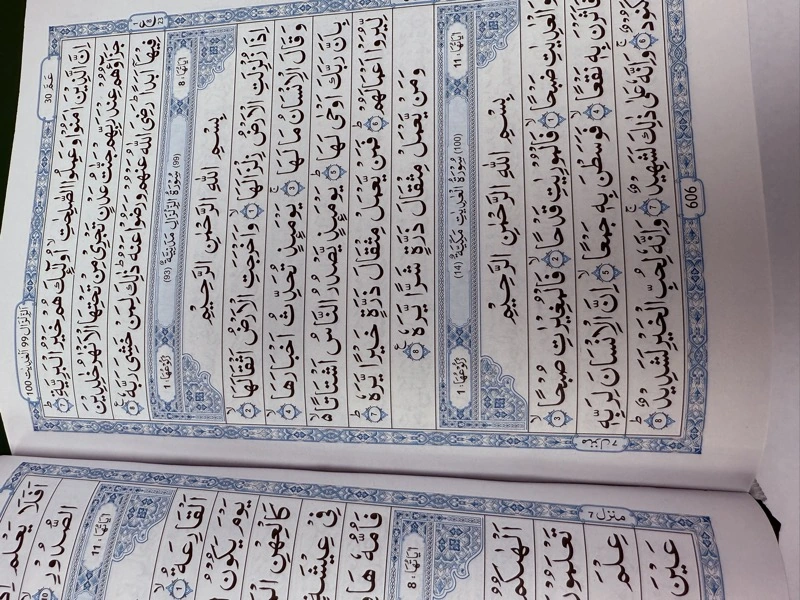 عمّ 30
الزلزال 99 العديت 100
اِنَّ الَّذِيْنَ اٰمَنُوْا وَعَمِلُوا الصّٰلِحٰتِ ۙ اُولٰٓئِكَ هُمْ خَيْرُ الْبَرِيَّةِ ؕ ﴿7﴾
جَزَآؤُهُمْ عِنْدَ رَبِّهِمْ جَنّٰتُ عَدْنٍ تَجْرِيْ مِنْ تَحْتِهَا الْاَنْهٰرُ خٰلِدِيْنَ
فِيْهَآ اَبَدًا ؕ رَضِيَ اللّٰهُ عَنْهُمْ وَرَضُوْا عَنْهُ ؕ ذٰلِكَ لِمَنْ خَشِيَ رَبَّهٗ ﴿8﴾
اٰيَاتُهَا : 8
(99) سُوْرَةُ الزِّلْزَالِ مَدَنِيَّةٌ (93)
رُكُوْعُهَا : 1
بِسْمِ اللّٰهِ الرَّحْمٰنِ الرَّحِيْمِ
اِذَا زُلْزِلَتِ الْاَرْضُ زِلْزَالَهَا ۙ ﴿1﴾ وَاَخْرَجَتِ الْاَرْضُ اَثْقَالَهَا ۙ ﴿2﴾
وَقَالَ الْاِنْسَانُ مَا لَهَا ۚ ﴿3﴾ يَوْمَئِذٍ تُحَدِّثُ اَخْبَارَهَا ۙ ﴿4﴾
بِاَنَّ رَبَّكَ اَوْحٰى لَهَا ؕ ﴿5﴾ يَوْمَئِذٍ يَّصْدُرُ النَّاسُ اَشْتَاتًا ۙ۬
لِّيُرَوْا اَعْمَالَهُمْ ؕ ﴿6﴾ فَمَنْ يَّعْمَلْ مِثْقَالَ ذَرَّةٍ خَيْرًا يَّرَهٗ ؕ ﴿7﴾
وَمَنْ يَّعْمَلْ مِثْقَالَ ذَرَّةٍ شَرًّا يَّرَهٗ ﴿8﴾
اٰيَاتُهَا : 11
(100) سُوْرَةُ الْعٰدِيٰتِ مَكِّيَّةٌ (14)
رُكُوْعُهَا : 1
بِسْمِ اللّٰهِ الرَّحْمٰنِ الرَّحِيْمِ
وَالْعٰدِيٰتِ ضَبْحًا ۙ ﴿1﴾ فَالْمُوْرِيٰتِ قَدْحًا ۙ ﴿2﴾ فَالْمُغِيْرٰتِ صُبْحًا ۙ ﴿3﴾
فَاَثَرْنَ بِهٖ نَقْعًا ۙ ﴿4﴾ فَوَسَطْنَ بِهٖ جَمْعًا ۙ ﴿5﴾ اِنَّ الْاِنْسَانَ لِرَبِّهٖ
لَكَنُوْدٌ ۚ ﴿6﴾ وَاِنَّهٗ عَلٰى ذٰلِكَ لَشَهِيْدٌ ۚ ﴿7﴾ وَاِنَّهٗ لِحُبِّ الْخَيْرِ لَشَدِيْدٌ ؕ ﴿8﴾
606
منزل 7
اَفَلَا يَعْلَمُ
الصُّدُوْرِ
اٰيَاتُهَا : 11
اَلْقَارِعَةُ ۙ ﴿1﴾
يَوْمَ يَكُوْنُ
كَالْعِهْنِ
فِيْ عِيْشَةٍ
فَاُمُّهٗ هَا
اٰيَاتُهَا : 8
اَلْهٰىكُمُ
تَعْلَمُوْنَ
عِلْمَ
عَيْنَ
منزل 7